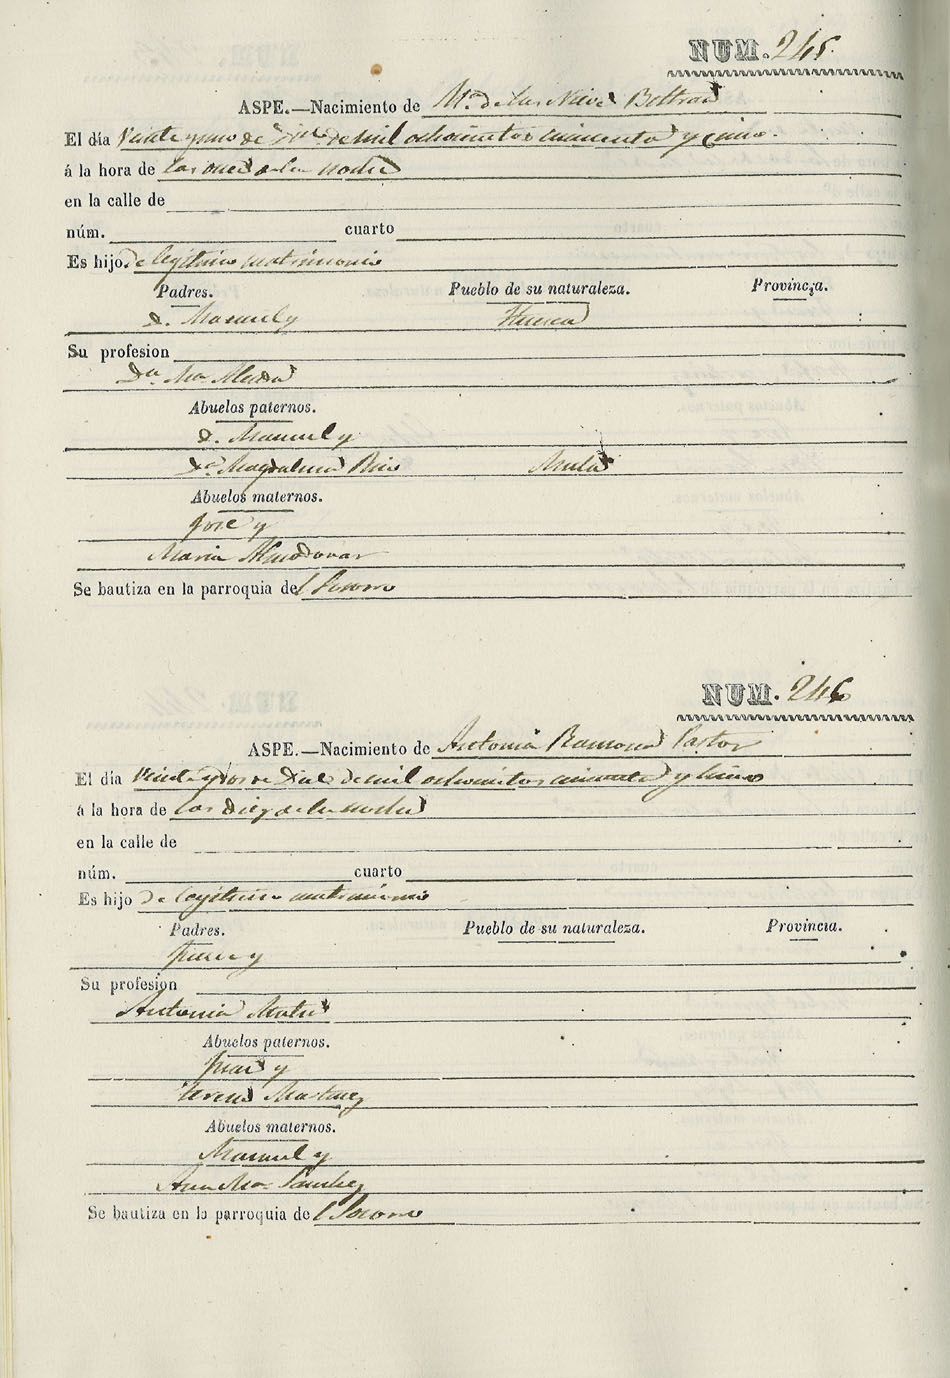 NUM. 245
ASPE.—Nacimiento de Mª de las Nieves Beltran
El día Veinte y uno de de mil ochocientos cincuenta y cinco
á la hora de las once de la noche
en la calle de
núm. cuarto
Es hijo de legitimo matrimonio
Padres. Pueblo de su naturaleza. Provincia.
D. Manuel y Huesca
Su profesion
Dª Mª
Abuelos paternos.
D. Manuel y
Dª Magdalena Mula
Abuelos maternos.
José y
Maria Almodovar
Se bautiza en la parroquia del Socorro
NUM. 246
ASPE.—Nacimiento de Antonia Ramona Pastor
El día Veinte y dos de de mil ochocientos cincuenta y cinco
á la hora de las diez de la noche
en la calle de
núm. cuarto
Es hijo de legitimo matrimonio
Padres. Pueblo de su naturaleza. Provincia.
y
Su profesion
Antonia
Abuelos paternos.
Juan y
Teresa Martinez
Abuelos maternos.
Manuel y
Ana Mª Sanchez
Se bautiza en la parroquia del Socorro